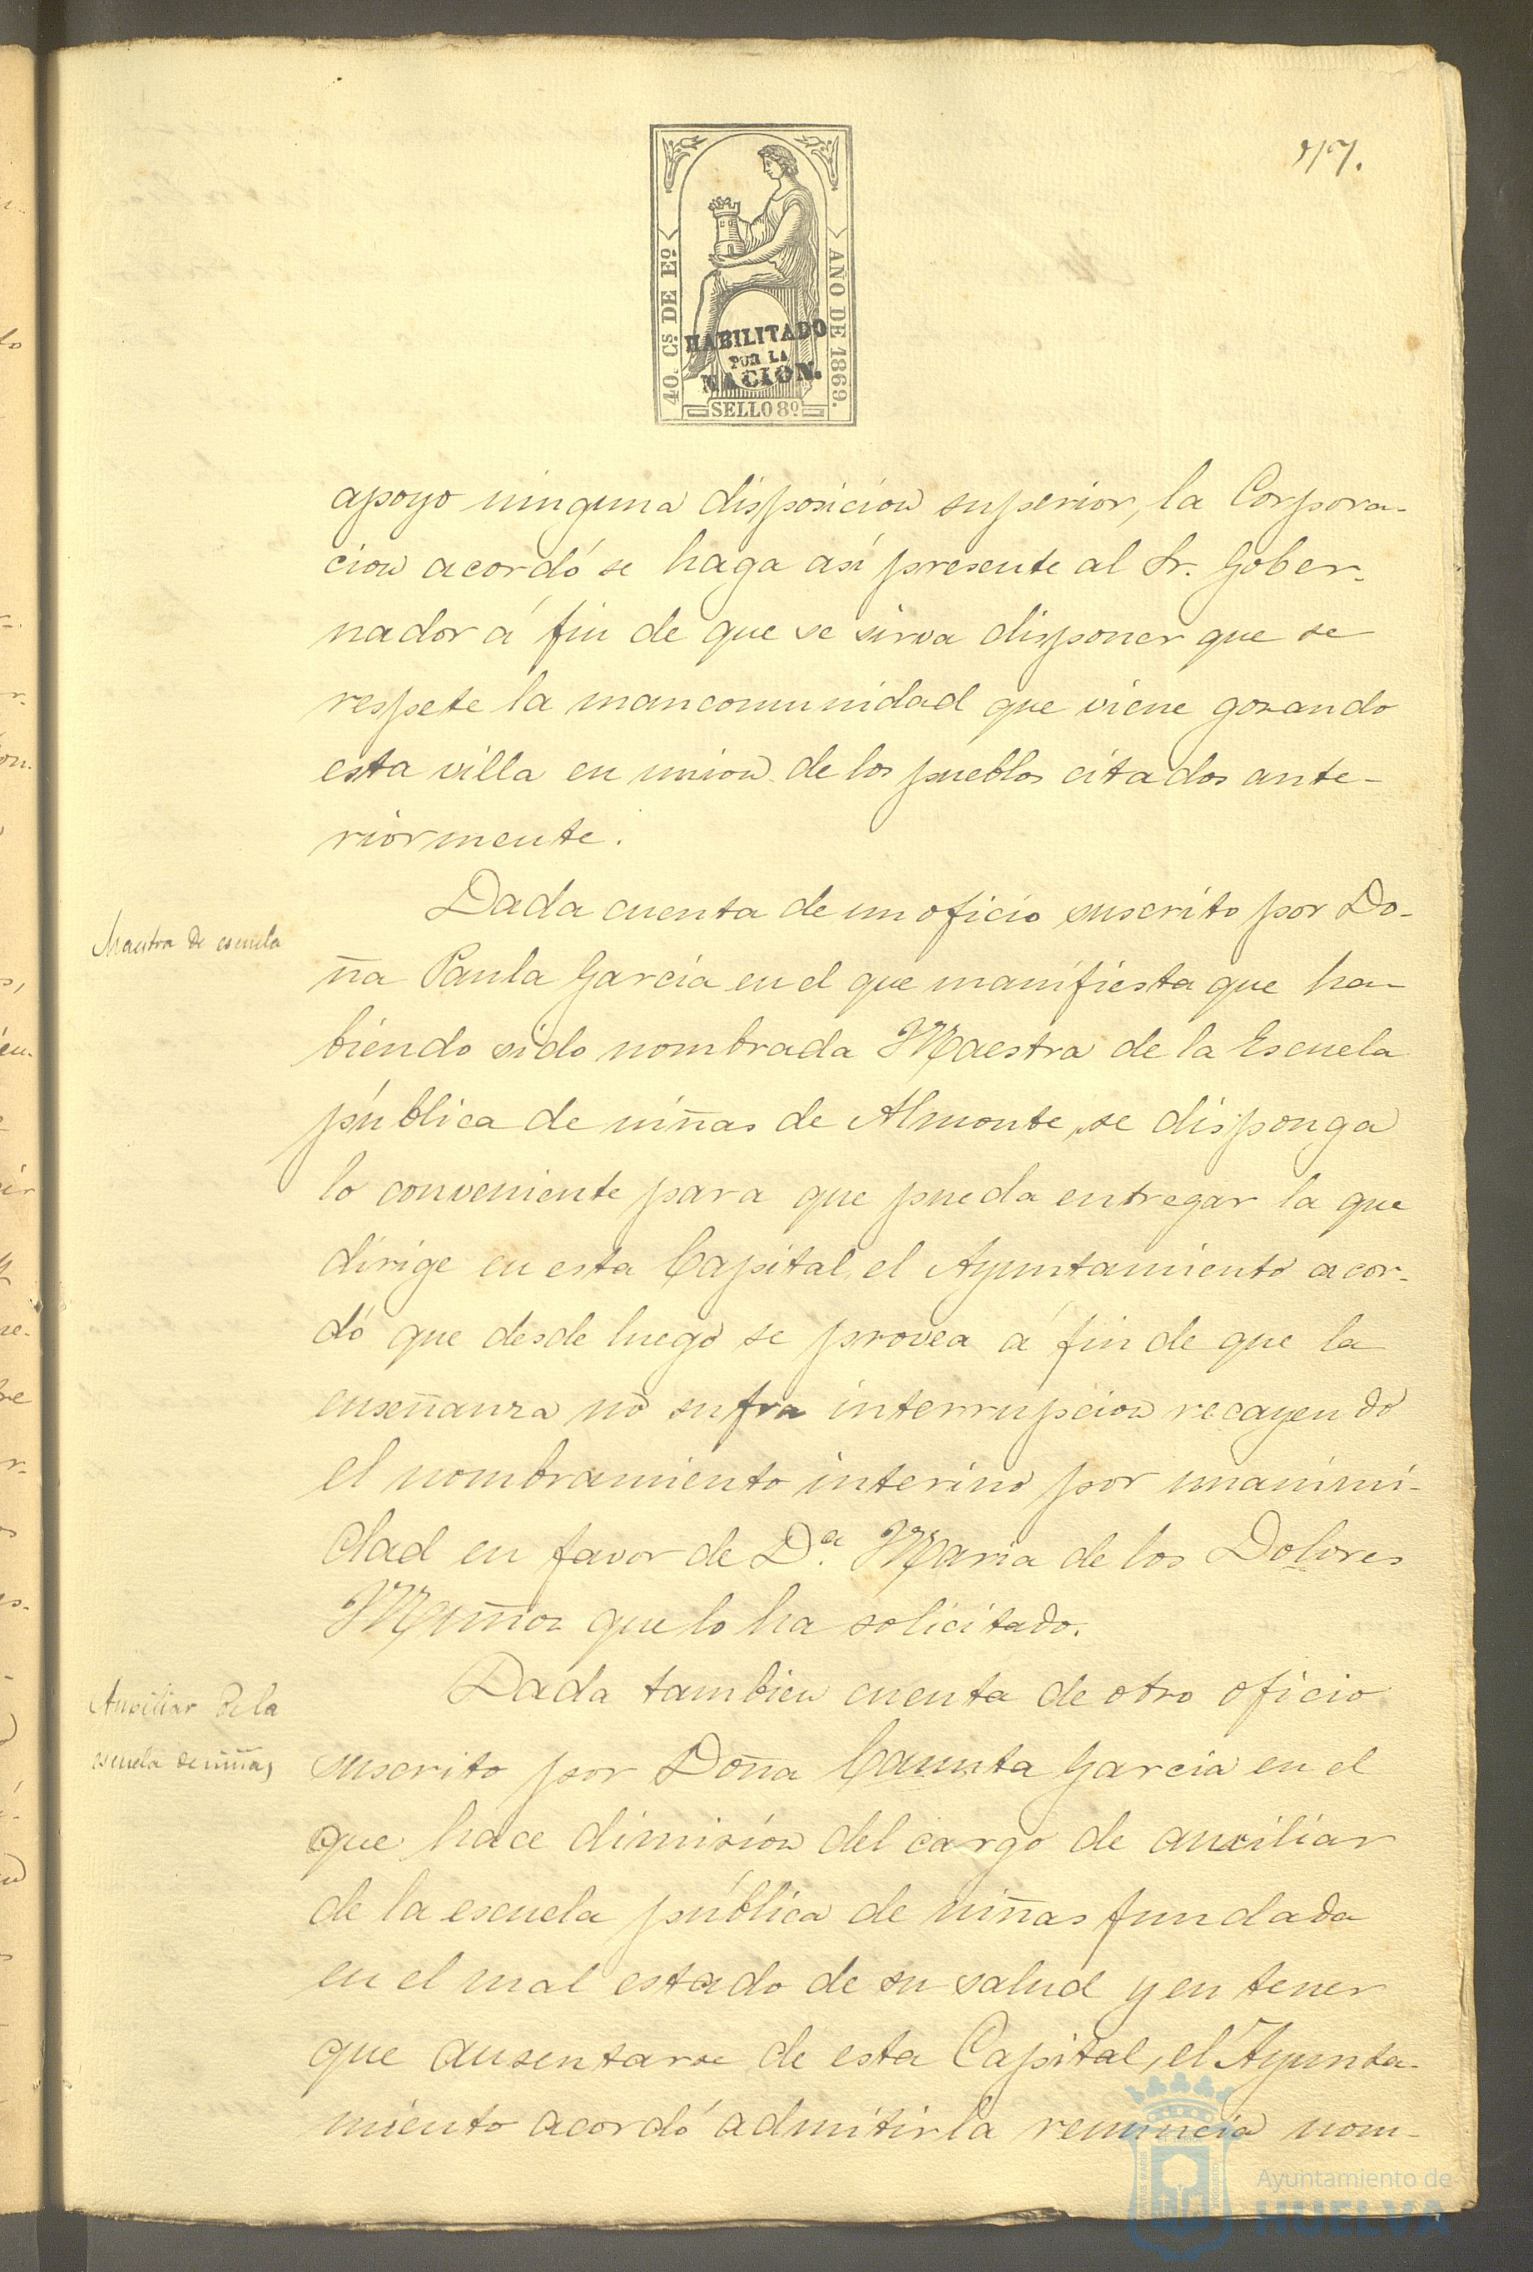 40. Cs DE Eº
AÑO DE 1869.
HABILITADO
POR LA
NACION.
SELLO 8º
apoyo ninguna disposicion superior, la Corpora-
cion acordó se haga así presente al Sr. Gober-
nador á fin de que se sirva disponer que se
respete la mancomunidad que viene gozando
esta villa en union de los pueblos citados ante-
riormente.
Maestra de escuela
Dada cuenta de un oficio suscrito por Do-
ña Paula Garcia en el que manifiesta que ha-
biendo sido nombrada Maestra de la Escuela
pública de niñas de Almonte, se disponga
lo conveniente para que pueda entregar la que
dirige en esta Capital, el Ayuntamiento acor-
dó que desde luego se provea á fin de que la
enseñanza no sufra interrupcion recayendo
el nombramiento interino por unanimi-
dad en favor de D.ª Maria de los Dolores
Muñoz que lo ha solicitado.
Auxiliar de la
escuela de niñas
Dada tambien cuenta de otro oficio
suscrito por Doña Garcia en el
que hace dimision del cargo de auxiliar
de la escuela pública de niñas fundada
en el mal estado de su salud y en tener
que ausentarse de esta Capital, el Ayunta-
miento acordó admitirla renuncia nom-
Ayuntamiento de
HUELVA